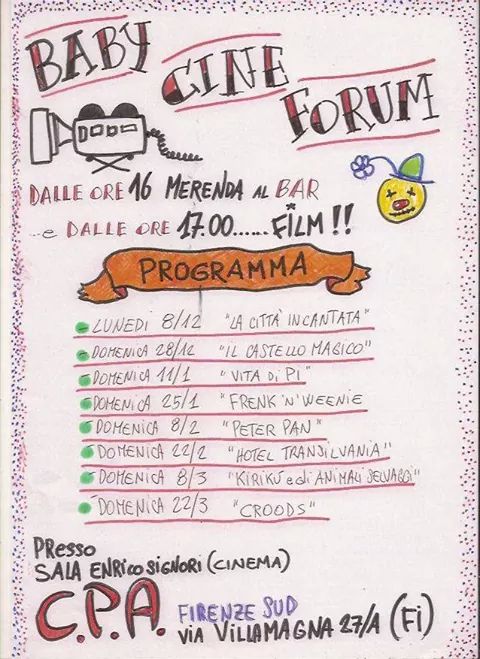 BABY
CINE
FORUM
DALLE ORE 16 MERENDA AL BAR
...e DALLE ORE 17.00...... FILM!!
PROGRAMMA
- LUNEDI 8/12 "LA CITTÀ INCANTATA"
- DOMENICA 28/12 "IL CASTELLO MAGICO"
- DOMENICA 11/1 "VITA Di PI"
- DOMENICA 25/1 "FRENK 'N' WEENIE
- DOMENICA 8/2 "PETER PAN"
- DOMENICA 22/2 "HOTEL TRANSILVANIA"
- DOMENICA 8/3 "KIRIKÚ e gli ANIMALI SELVAGGI"
- DOMENICA 22/3 "CROODS"
PRESSO
SALA ENRICO SIGNORI (CINEMA)
C.P.A. FIRENZE SUD
VIA VILLAMAGNA 27/A (Fi)